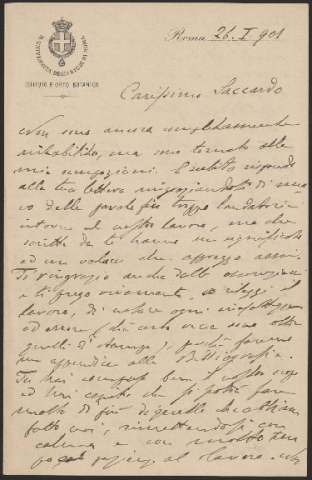 R. UNIVERSITÀ DEGLI STUDI DI ROMA
ISTITUTO E ORTO BOTANICO
Roma 26. I. 901
Carissimo Saccardo
Non sono ancora completamente
ristabilito, ma sono tornato alle
mie occupazioni. E subito rispondo
alla tua lettera ringraziandoti di nuo
vo delle parole più troppo laudatorie
intorno al nostro lavoro, ma che
scritte da te hanno un significato
ed un valore che apprezzo assai.
Ti ringrazio anche delle osservazioni
e ti prego vivamente, se rileggi il
lavoro, di notare ogni
ed errore (più certo ve ne sono oltre
quelli di stampa); potrò farne
un appendice alla Bibliografia.
Tu hai compreso bene il nostro scopo
ed hai capito che si potrà fare
molto di più di quello che abbiam
fatto noi, rimettendosi con
calma e con molto tem
po al lavoro.